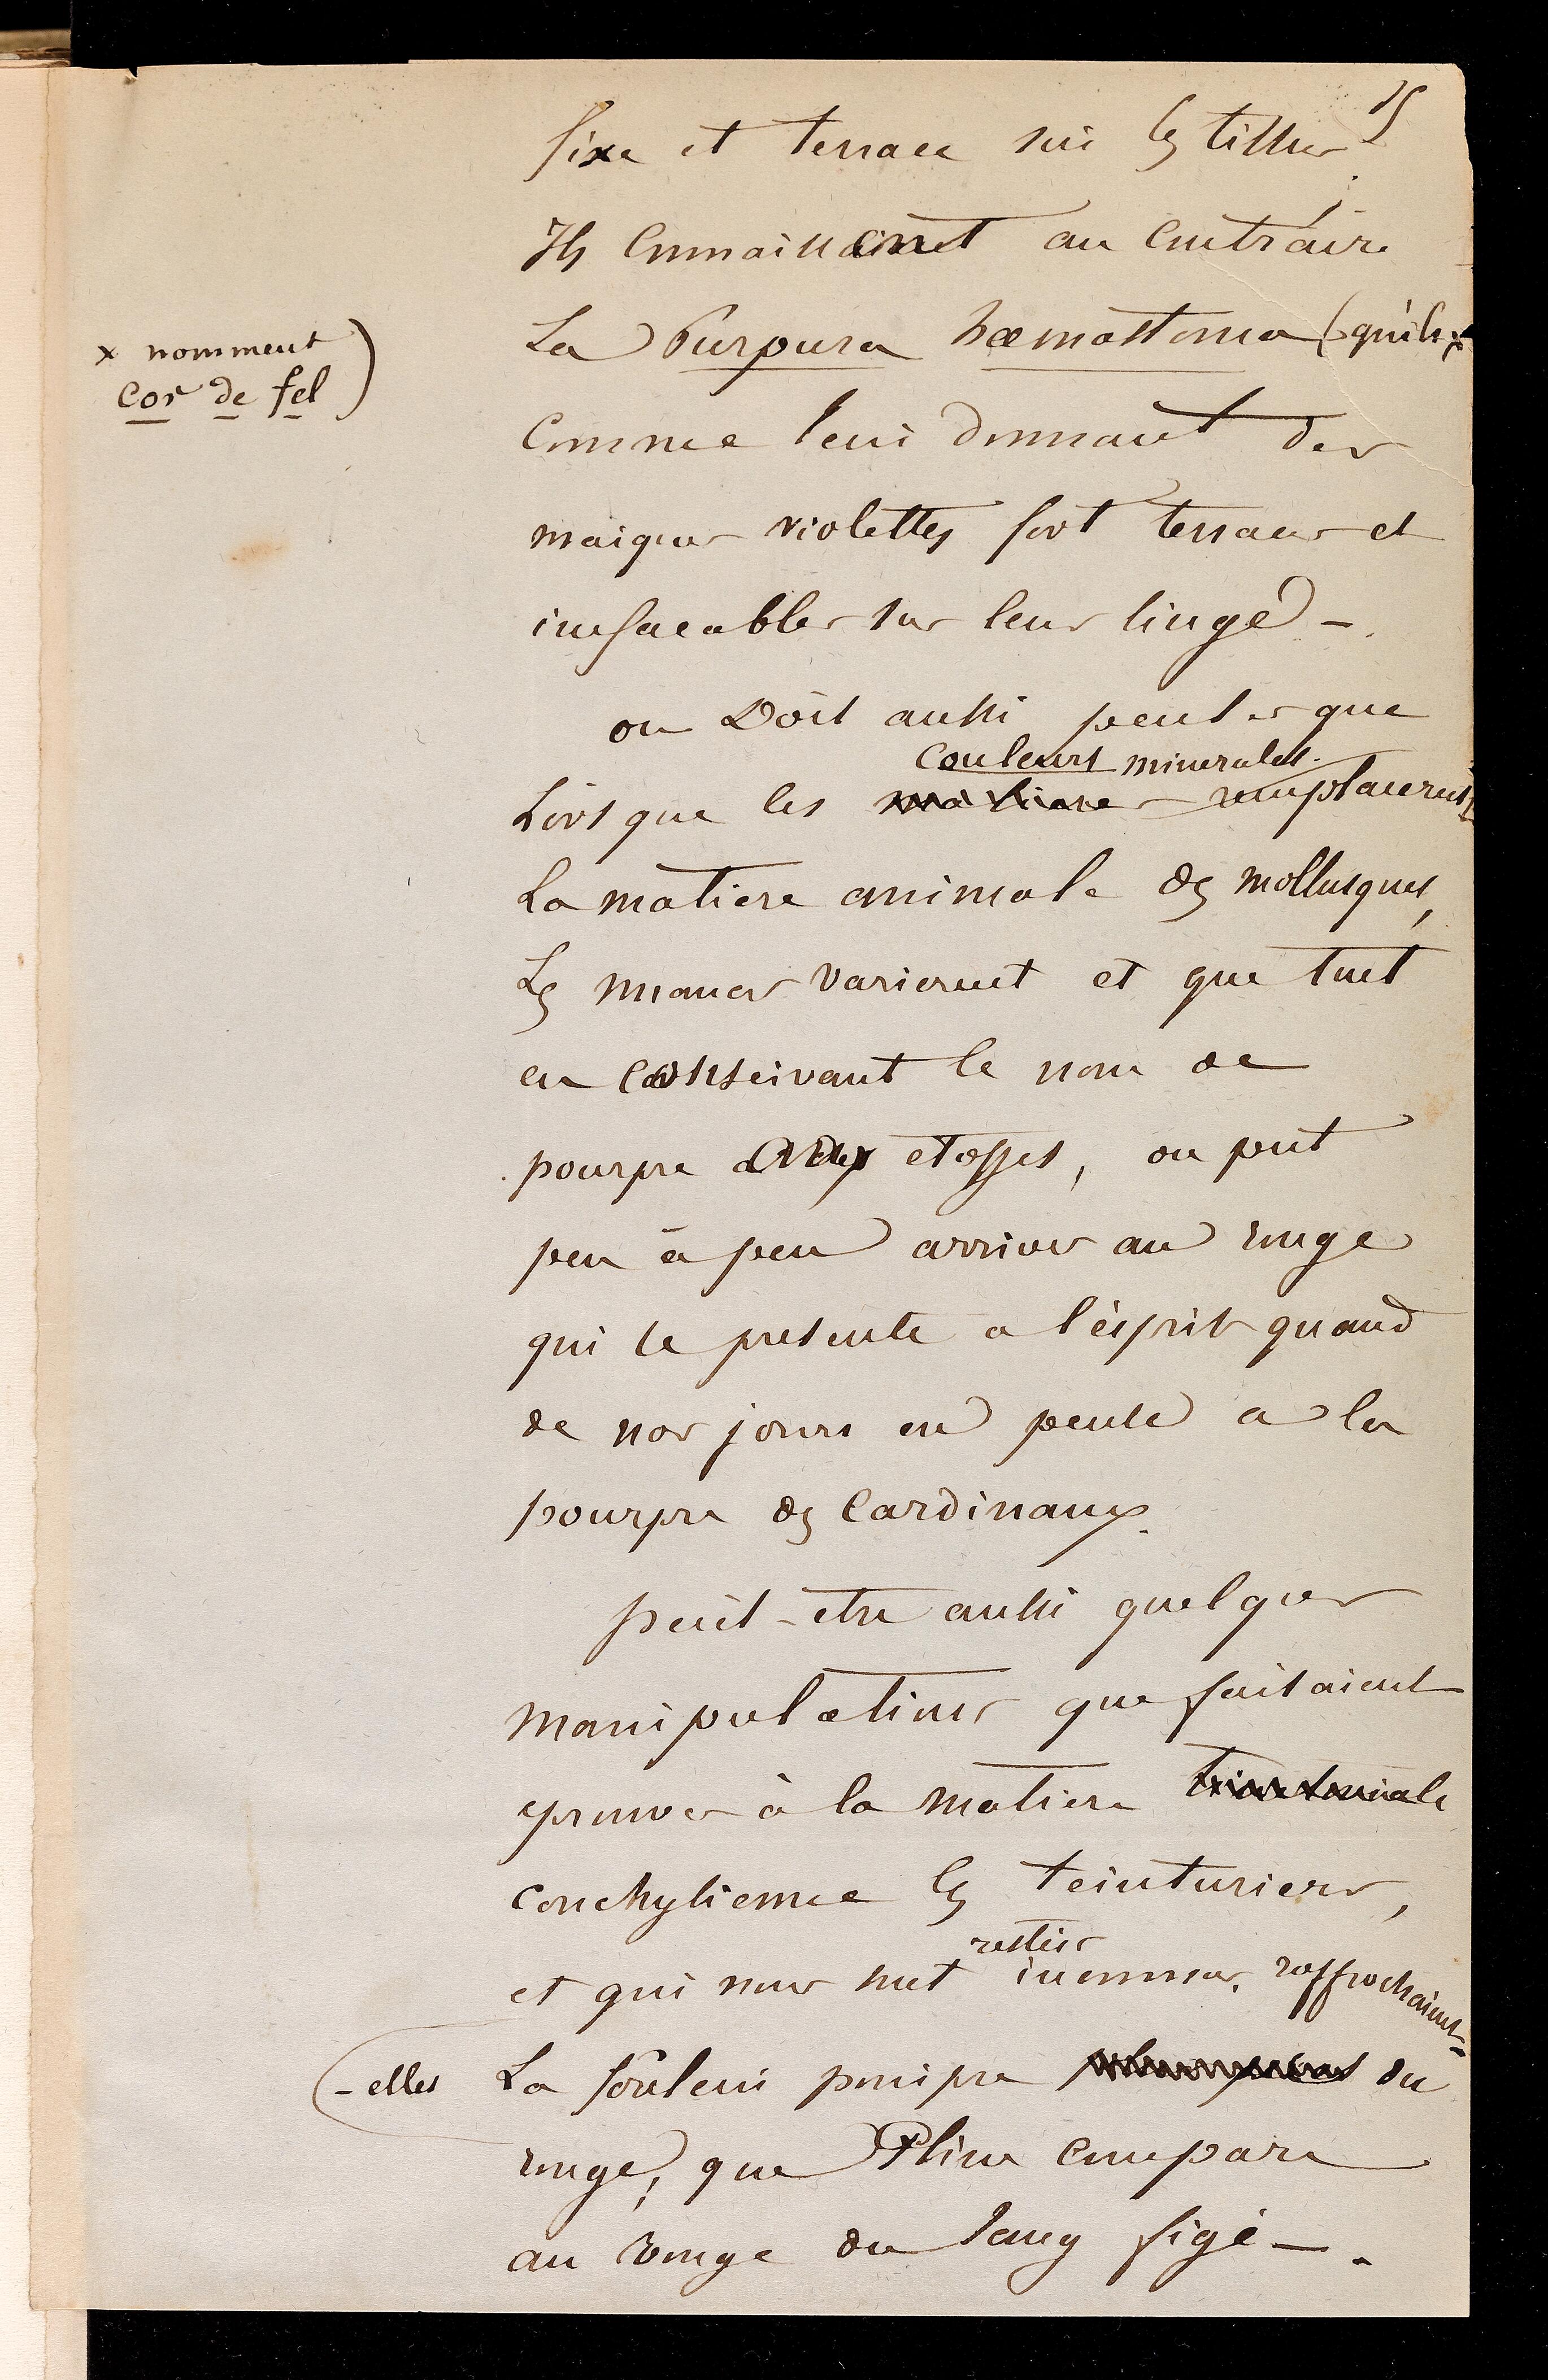 15
fixe et tenace sur les tissus.
Ils connaissaient au contraire
x nomment
cor de fel)
La Purpura hæmastoma (qu'ils x
comme leur donnant des
marques violettes fort tenaces et
ineffacables sur leur linge -.
on Doit aussi penser que
couleurs minerales
Lorsque les matiere remplacerent
La matiere animale des mollusques,
Les nuances varierent et que tout
en conservant le nom de
pourpre aux etoffes, on put
peu à peu arriver au rouge
qui se presente a l'ésprit quand
de nos jours on pense a la
pourpre des Cardinaux.
peut-etre aussi quelques
manipulations que faisaient
eprouver à la matiere tinctoriale
conchylienne les teinturiers,
restées
et qui nous sont inconnues, rapprochaient-
(-elles
La couleur pourpre du
rouge, que Pline compare
au rouge du sang figé -.